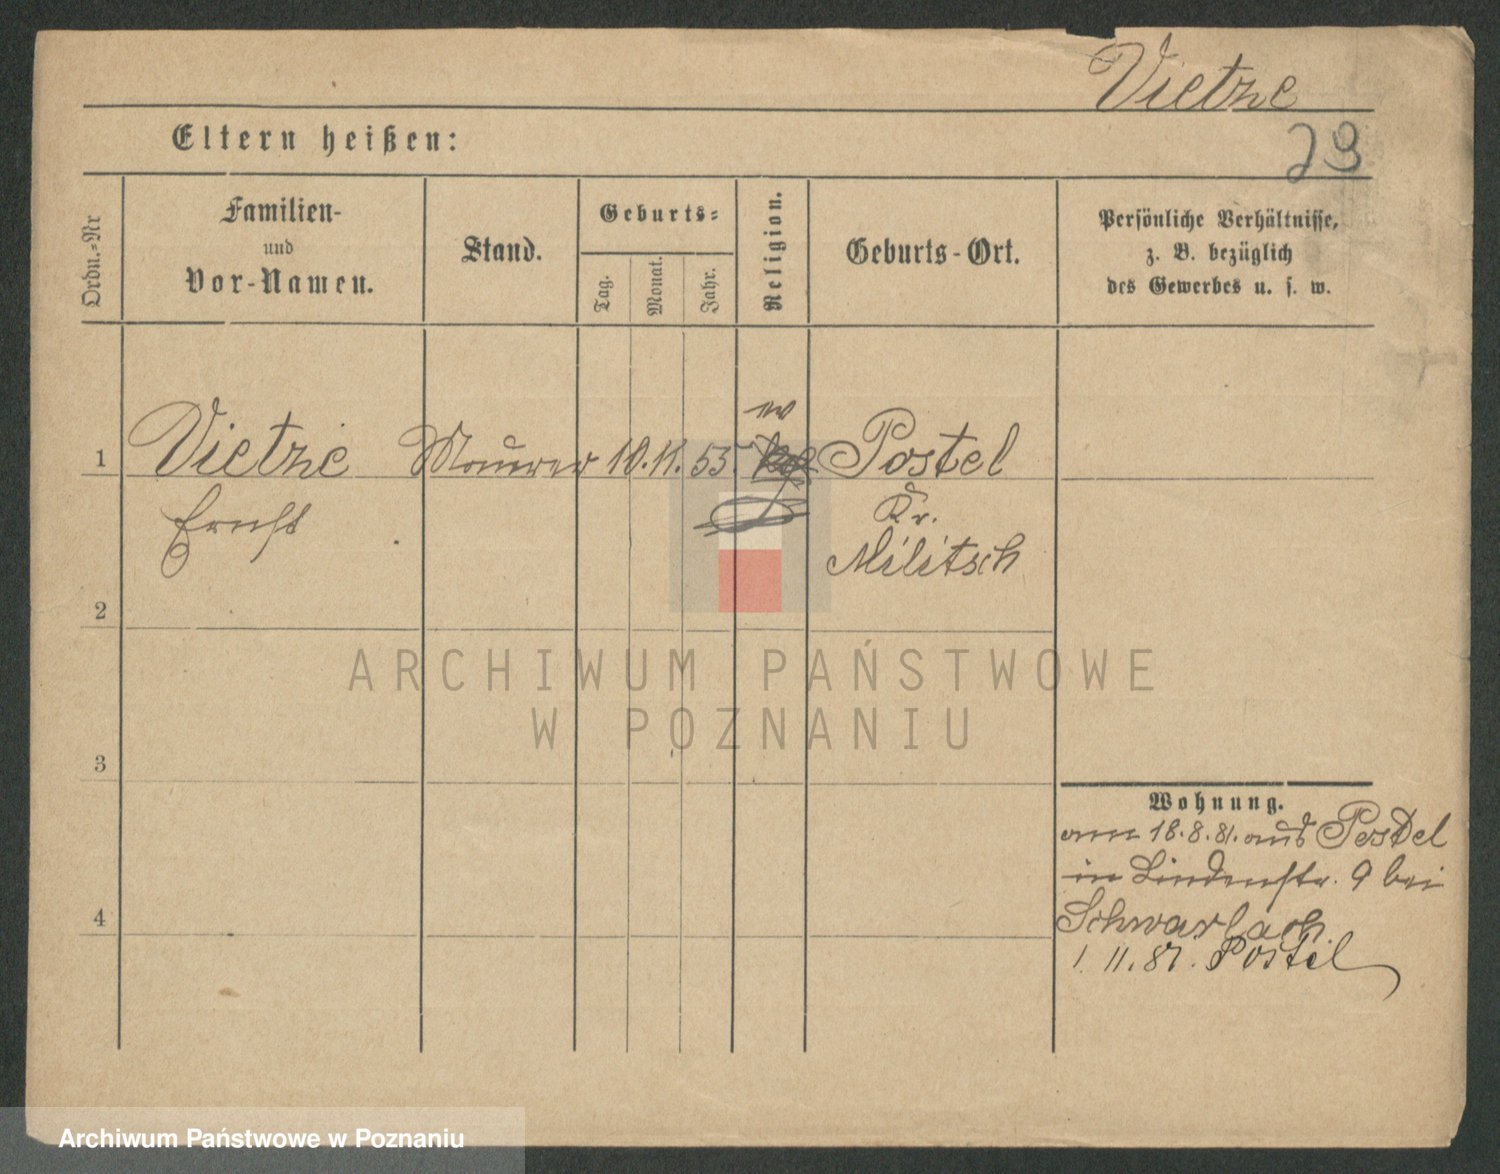 Vietze
Eltern heißen:
29
Ordn.-Nr
Familien-
und
Vor-Namen.
Stand.
Geburts-
Tag.
Monat.
Jahr.
Religion.
Geburts-Ort.
Persönliche Verhältnisse,
z. B. bezüglich
des Gewerbes u. s. w.
1
Vietze
Maurer
10. 11. 53.
ev
Postel
Ernst
Kr.
Militsch
2
3
4
Wohnung.
am 18.8.81. aus Postel
in Lindenstr. 9 bei
1. 11. 81. Postel
ARCHIWUM PAŃSTWOWE
W POZNANIU
Archiwum Państwowe w Poznaniu